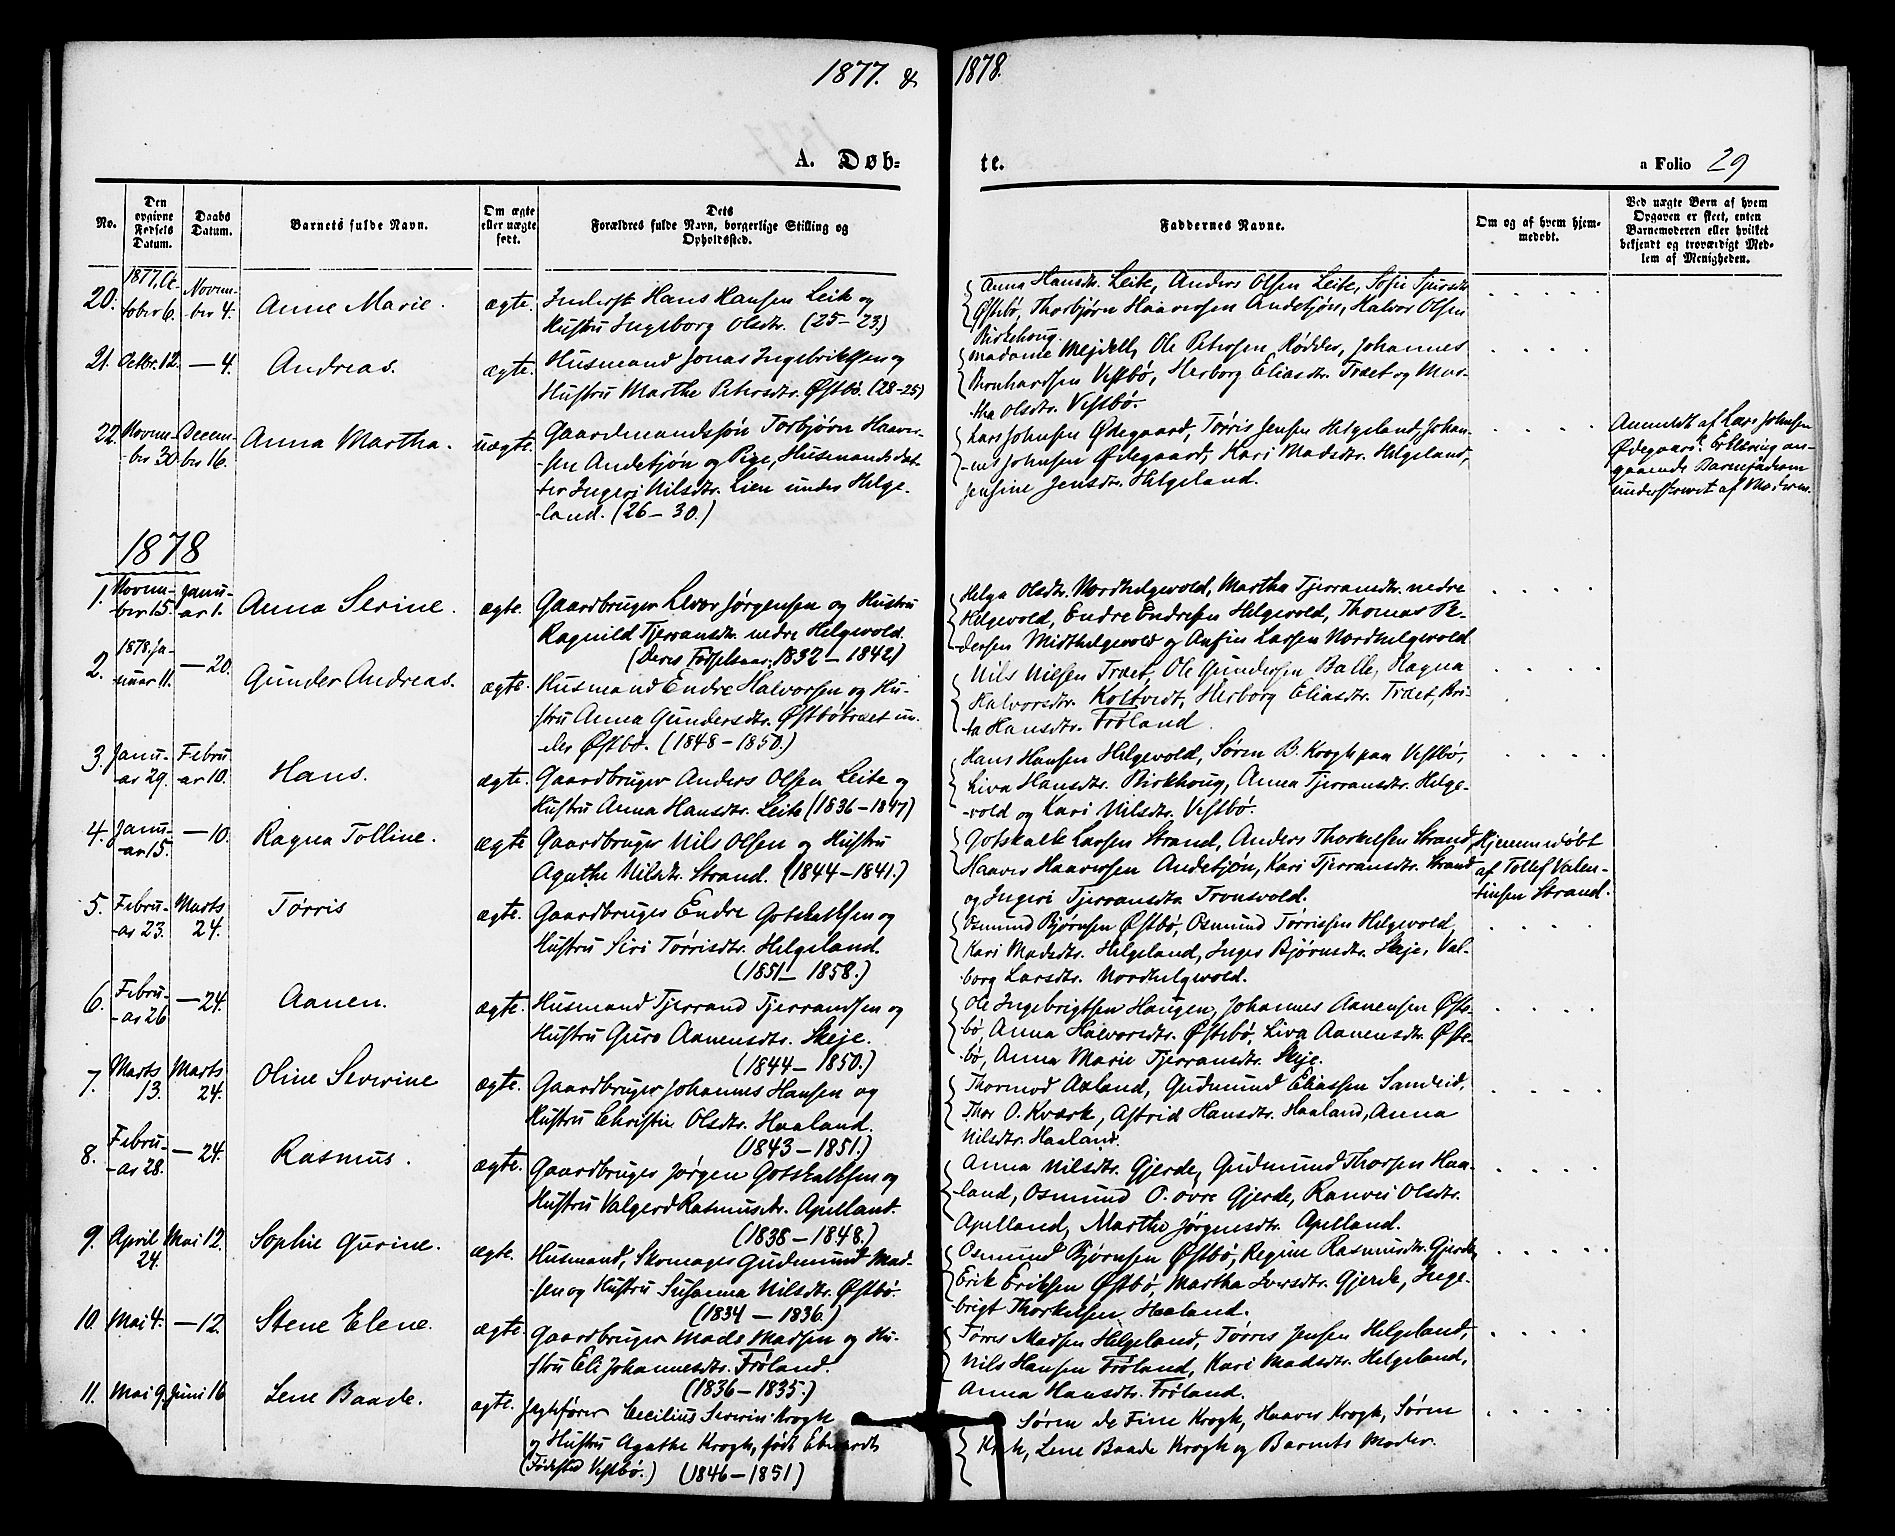 1877. & 1878.
A. Døb- te. a Folio 29
No.
Den opgivne Fødsels Datum.
Daabs Datum.
Barnets fulde Navn.
Om ægte eller uægte født.
Dets Forældres fulde Navn, borgerlige Stilling og Opholdssted.
Faddernes Navne.
Om og af hvem hjemmedøbt.
Ved uægte Børn af hvem Opgaven er skeet, enten Barnemoderen eller hvilket bekjendt og troværdigt Medlem af Menigheden.
20. 1877. Oc-
tober 6. Novem-
ber 4. Anne Marie. ægte. Inderst Hans Hansen Leite og
Hustru Ingeborg Olsdtr. (25-23.)
Anna Hansdtr. Leite, Anders Olsen Leite, Sofie Sjursdtr.
Østebø, Thorbjørn Haaversen Andetjøn, Halvor Olsen
Birkehoug.
21. Octbr. 12. — 4. Andreas. ægte. Husmand Jonas Ingebrigtsen og
Hustru Marthe Petersdtr. Østbø. (28-25)
Madame Mejdell, Ole Petersen Rødder, Johannes
Bernhardsen Vestbø, Herborg Eliasdtr. Træet og Mar-
tha Olsdtr. Vestbø.
22. Novem-
ber 30 Decem-
ber 16. Anna Martha. uægte. Gaardmandssøn Torbjørn Haaver-
sen Andetjøn og Pige, Husmandsdat-
ter Ingeri Nilsdtr. Lien under Helge-
land. (26-30.)
Lars Johnsen Ødegaard, Tørris Jensen Helgeland, Johan-
nes Johnsen Ødegaard, Kari Madsdtr. Helgeland,
Jensine Jensdtr. Helgeland.
Anmeldt af Lars Johnsen
Ødegaard. Erklæring an-
gaaende Barnefadern
underskrevet af Moderen.
1878
1. Novem-
ber 15. Janu-
ar 1. Anna Serine. ægte. Gaardbruger Iver Jørgensen og Hustru
Ragnild Tjerransdtr. nedre Helgevold.
(Deres Fødselsaar: 1832-1842)
Helga Olsdtr. Nordhelgevold, Martha Tjerransdtr. nedre
Helgevold, Endre Endresen Helgevold, Thomas Pe-
dersen Midthelgevold og Anfin Larsen Nordhelgevold
2. 1878. Ja-
nuar 11. — 20. Gunder Andreas. ægte. Husmand Endre Halvorsen og Hu-
stru Anna Gundersdtr. Østbøtræet un-
der Østbø. (1848-1850.)
Nils Nilsen Træet, Ole Gundersen Balle, Ragna
Halvorsdtr. Koltvedt, Herborg Eliasdtr. Træet, Bri-
ta Hansdtr. Frøland.
3. Janu-
ar 29. Febru-
ar 10. Hans. ægte. Gaardbruger Anders Olsen Leite og
Hustru Anna Hansdtr. Leite (1836-1847)
Hans Hansen Helgevold, Søren B. Krogh paa Vestbø,
Liva Hansdtr. Birkhoug, Anna Tjerransdtr. Helge-
vold og Kari Nilsdtr. Vestbø.
4. Janu-
ar 15. — 10. Ragna Tolline. ægte Gaardbruger Nils Olsen og Hustru
Agathe Nilsdtr. Strand. (1844-1841.)
Gotskalk Larsen Strand, Anders Thorkelsen Strand,
Haaver Haaversen Andetjøn, Kari Tjerransdtr. Strand
og Ingeri Tjerransdtr. Tronsvold.
Hjemmedøbt
af Tollef Valen-
tinsen Strand.
5. Febru-
ar 23. Marts
24. Tørris ægte. Gaardbruger Endre Gotskalksen og
Hustru Siri Tørrisdtr. Helgeland.
(1851-1858.)
Osmund Bjørnsen Østbø, Osmund Tørrissen Helgevold,
Kari Madsdtr. Helgeland, Inger Bjørnsdtr. Skeje, Val-
borg Larsdtr. Nordhelgevold.
6. Febru-
ar 26 — 24. Aanen. ægte. Husmand Tjerrand Tjerrandsen og
Hustru Guro Aanensdtr. Skeje.
(1844-1850.)
Ole Ingebrigtsen Haugen, Johannes Aanensen Øste-
bø, Anna Halvorsdtr. Østebø, Liva Aanensdtr. Øste-
bø, Anna Marie Tjerransdtr. Skeje.
7. Marts
13. Marts
24. Oline Severine ægte. Gaardbruger Johannes Hansen og
Hustru Christie Olsdtr. Haaland.
(1843-1851.)
Thormod Axland, Gudmund Eliassen Sandeid,
Thor O. Kværk, Astrid Hansdtr. Haaland, Anna
Nilsdtr. Haaland.
8. Febru-
ar 28. — 24. Rasmus. ægte. Gaardbruger Jørgen Gotskalksen og
Hustru Valgerd Rasmusdtr. Apelland.
(1838-1848.)
Anna Nilsdtr. Gjerde, Gudmund Thorsen Haa-
land, Osmund O. øvre Gjerde, Ranvei Olsdtr.
Apelland, Marthe Jørgensdtr. Apelland.
9. April
24. Mai 12. Sophie Gurine. ægte. Husmand, Skomager Gudmund Mad-
sen og Hustru Susanna Nilsdtr. Østbø.
(1834-1836.)
Osmund Bjørnsen Østbø, Regine Rasmusdtr. Gjerde,
Erik Eriksen Østbø, Martha Iversdtr. Gjerde, Inge-
brigt Thorkelsen Haaland.
10. Mai 4. — 12. Stene Elene. ægte. Gaardbruger Mads Madsen og Hu-
stru Eli Johannesdtr. Frøland.
(1836-1835.)
Tørres Madsen Helgeland, Tørres Jensen Helgeland,
Nils Hansen Frøland, Kari Madsdtr. Helgeland,
Anna Hansdtr. Frøland.
11. Mai 9. Juni 16 Lene Baade. ægte. Jægtefører Cecilius Severin Krogh
og Hustru Agathe Krogh, født Ebhardt
(Fødested Vestbø.) (1846-1851)
Søren de Fine Krogh, Haaver Krogh, Søren
Krogh, Lene Baade Krogh og Barnets Moder.